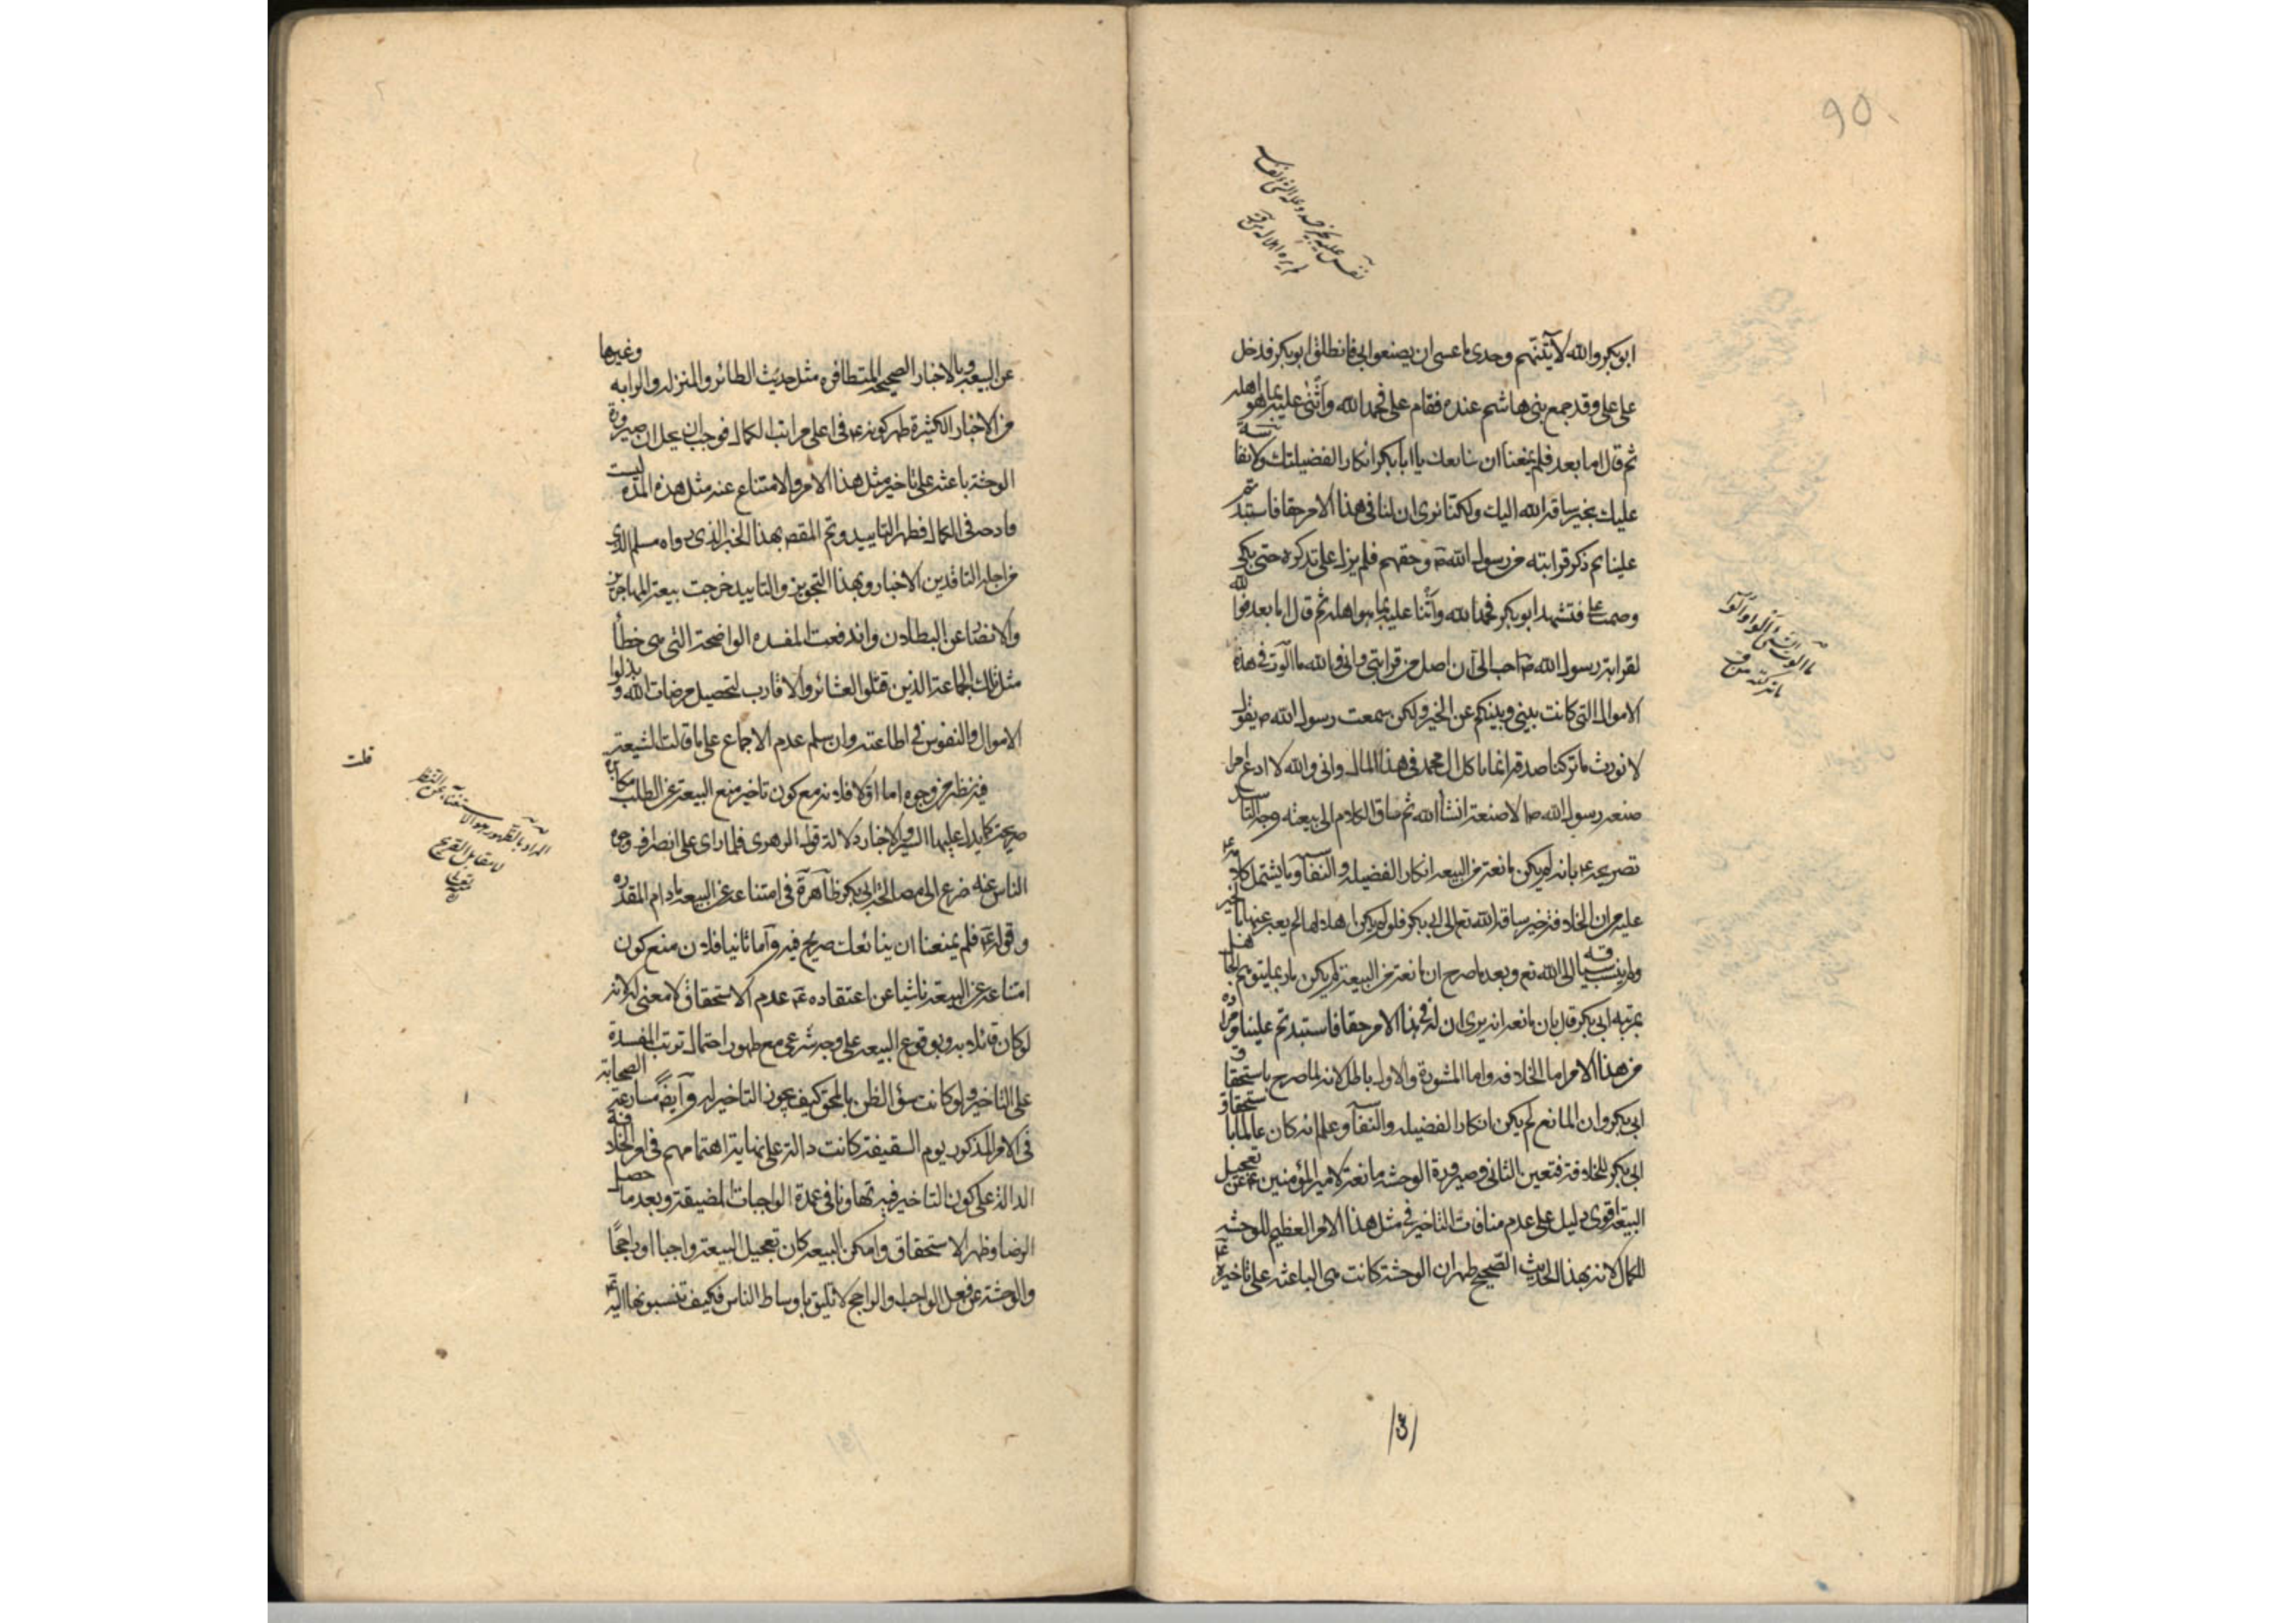 90
ابو بكر والله لآتينهم وحدى ما عسى ان يصنعوا بى فانطلق ابو بكر فدخل
على على وقد جمع بنى هاشم عنده فقام على فحمد الله واثنى عليه بما هو اهله
ثم قال اما بعد فلم يمنعنا ان نبايعك يا ابا بكر انكار الفضيلتك ولا نفاسة
عليك بخير ساقه الله اليك ولكنا نرى ان لنا فى هذا الامر حقا فاستبددتم
علينا ثم ذكر قرابته من رسول الله ص وحقهم فلم يزل على تذكره حتى بكى
وصمت على فتشهد ابو بكر فحمد الله واثنا عليه بما هو اهله ثم قال اما بعد فوالله
لقرابة رسول الله ص احب الى ان اصل من قرابتى وانى والله ما الوت فى هذه
الاموال التى كانت بينى وبينكم عن الخير ولكن سمعت رسول الله ص يقول
لا نورث ما تركنا صدقة انما ياكل ال محمد فى هذا المال وانى والله لا ادع امرا
صنعه رسول الله ص الا صنعته انشأ الله ثم ساق الكلام الى بيعته وجه التاسيد
تصريحه ع بانه لم يكن مانعه من البيعه انكار الفضيله والنفاسة وما يشتمل كلامه ع
عليه من ان الخلافة خير ساقه الله تع الى ابى بكر فلو لم يكن اهلا لها لم يعبر عنها بالخير
ولم ينسب سياقه الى الله تع وبعد ما صرح ان مانعه من البيعة لم يكن
بمرتبة ابى بكر قال بان مانعه انه يرى ان له فى هذا الامر حقا فاستبدتم علينا ومراده
من هذا الامر اما الخلافه واما المشورة والاول باطل لانه لما صرح باستحقاق
ابى بكر وان المانع لم يكن انكار الفضيله والنفاسة وعلم انه كان عالما باستحقاق
ابى بكر للخلافة فتعين الثانى وصيرورة الوحشه مانعة لامير المؤمنين ع عن تعجيل
البيعة اقوى دليل على عدم منافات التاخير فى مثل هذا الامر العظيم للوحشه
للكمال لانه بهذا الحديث الصحيح ظهر ان الوحشة كانت هى الباعثه على تاخيره ع
ما تركته
عن البيعه وبالاخبار الصحيحة المتظافره مثل حديث الطائر والمنزله والرايه وغيرها
من الاخبار الكثيرة ظهر كونه ع فى اعلى مراتب الكمال فوجب ان يحل ان صيرورة
الوحشة باعثه على تاخير مثل هذا الامر والامتناع عنه مثل هذه المدة ليست
قادحه فى الكمال فظهر التاييد وتم المقصد بهذا الخبر الذى رواه مسلم الذى
من اجلة الناقدين الاخبار وبهذا التجويز والتاييد خرجت بيعة المهاجرين
والانصار عن البطلان واندفعت المفسده الواضحة التى هى خطأ
مثل تلك الجماعة الذين قتلوا العشائر والاقارب لتحصيل مرضات الله وبذلوا
الاموال والنفوس فى اطاعته وان سلم عدم الاجماع على ما قالت الشيعة
قلت
فيه نظر من وجوه اما اولا فلانه مع كون تاخير منع البيعة عن الطلب مكابرة
صريحة كما يدل عليها السير والاخبار دلالة قول الزهرى فلما راى على انصراف وجوه
الناس عنه ضرع الى مصالحة ابى بكر ظاهرة فى امتناعه عن البيعه مادام المقدره
وقوله ع فلم يمنعنا ان نبايعك صريح فيه وآما ثانيا فلان منع كون
امتناعه عن البيعة ناشيا عن اعتقاده ع عدم الاستحقاق لا معنى له لانه
لو كان قائلا به وبوقوع البيعه على وجه شرعى مع ظهور احتمال ترتب المفسدة
على التاخير ولو كانت سؤ الظن بالمحق كيف يجوز التاخير له وآيضا مسارعة الصحابة
فى الامر المذكور يوم السقيفة كانت دالة على نهاية اهتمامهم فى امر الخلافة
الدالة على كون التاخير فيه تهاونا فى عمدة الواجبات المضيقة وبعد ما حصل
الرضا وظهر الاستحقاق وامكن البيعه كان تعجيل البيعة واجبا او راجحا
والوحشة عن فعل الواجب والراجح لا تليق باوساط الناس فكيف تنسبونها اليه ع